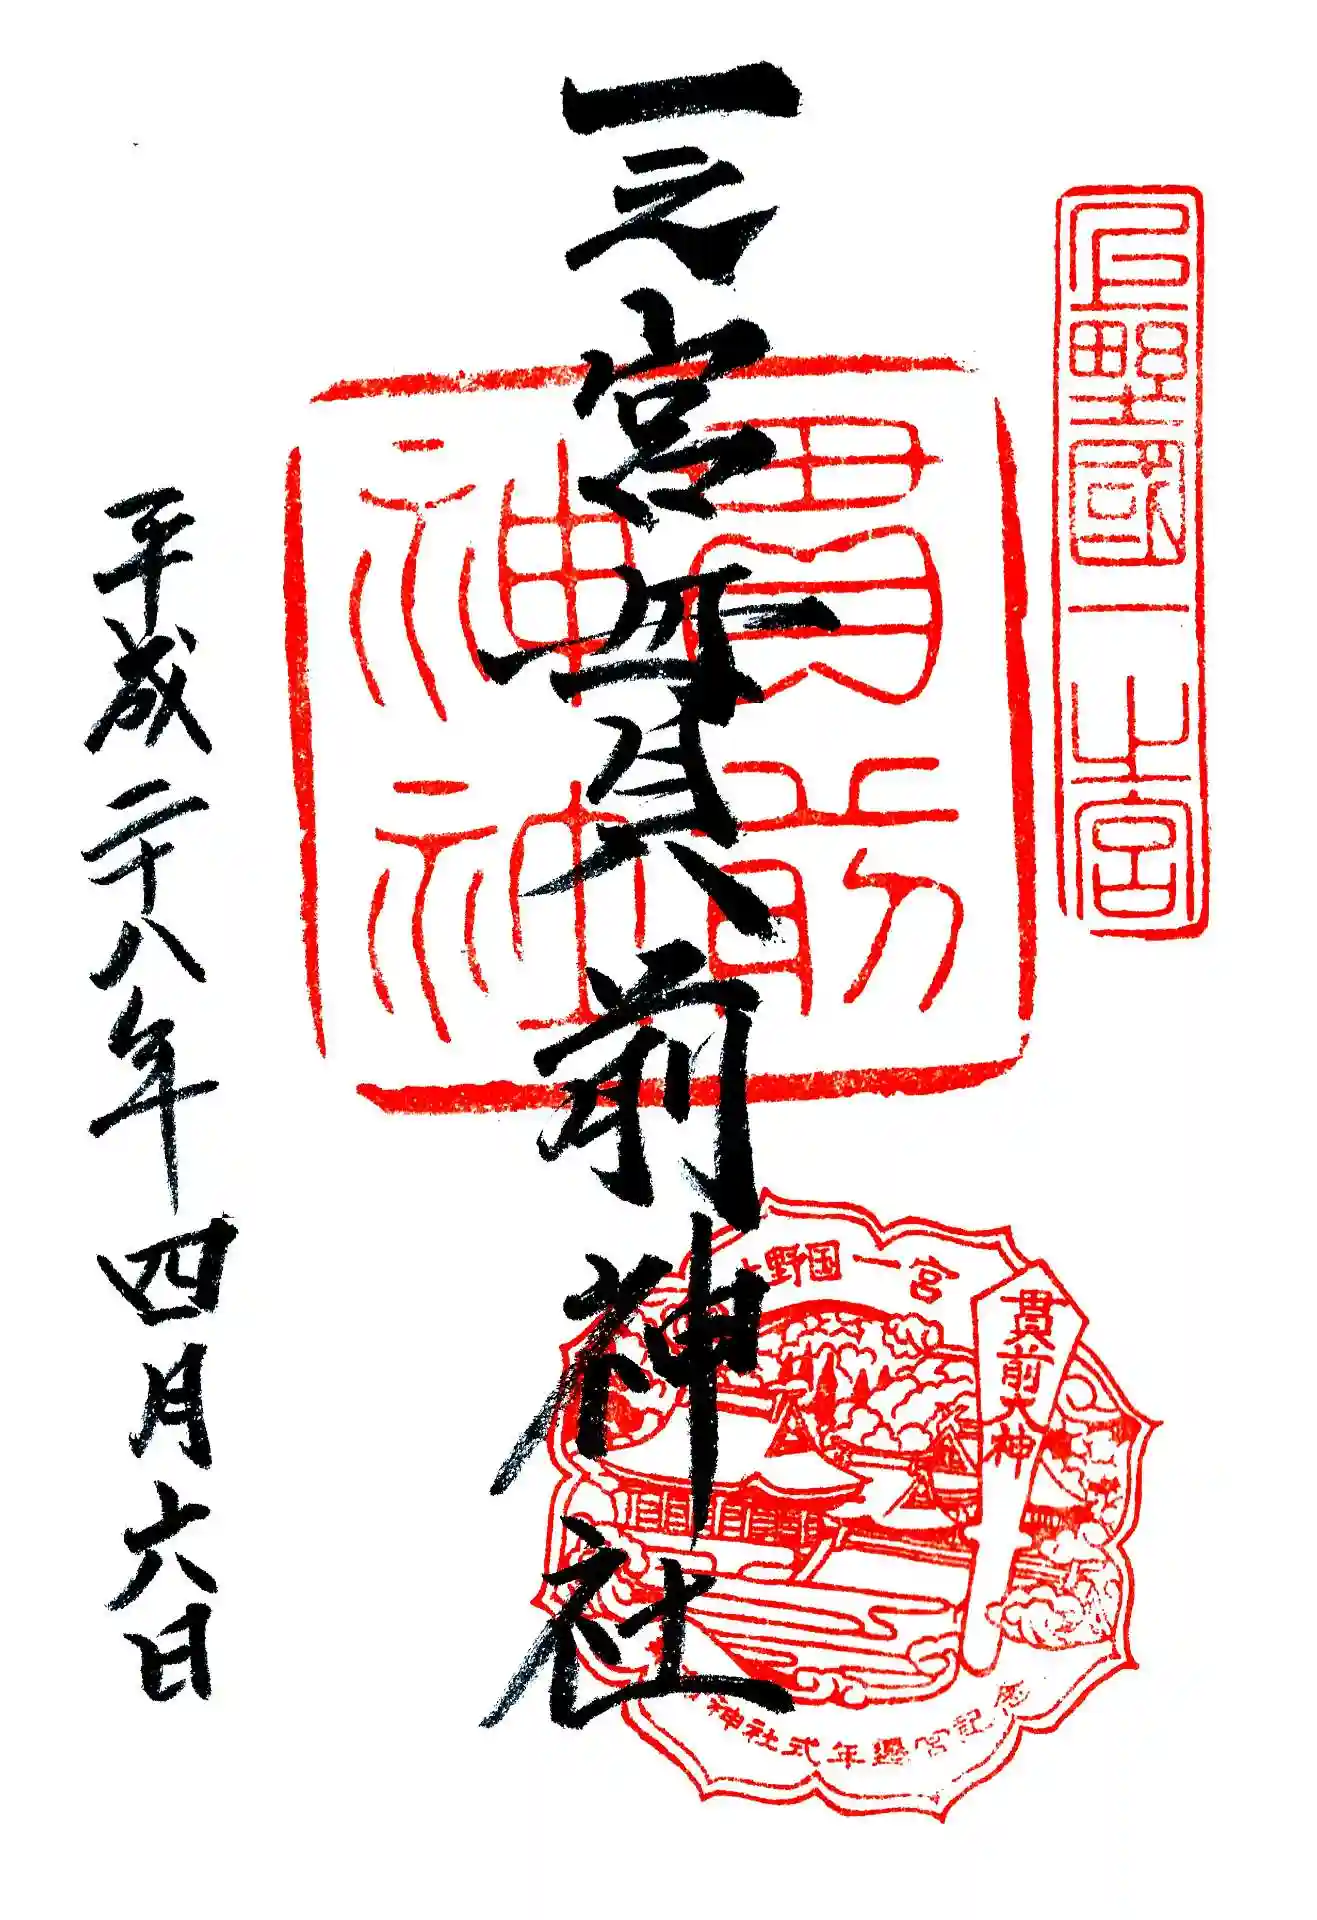 上野國一之宮
一之宮貫前神社
貫前
神社
平成二十八年四月六日
野国一宮
貫前大神
神社式年遷宮記